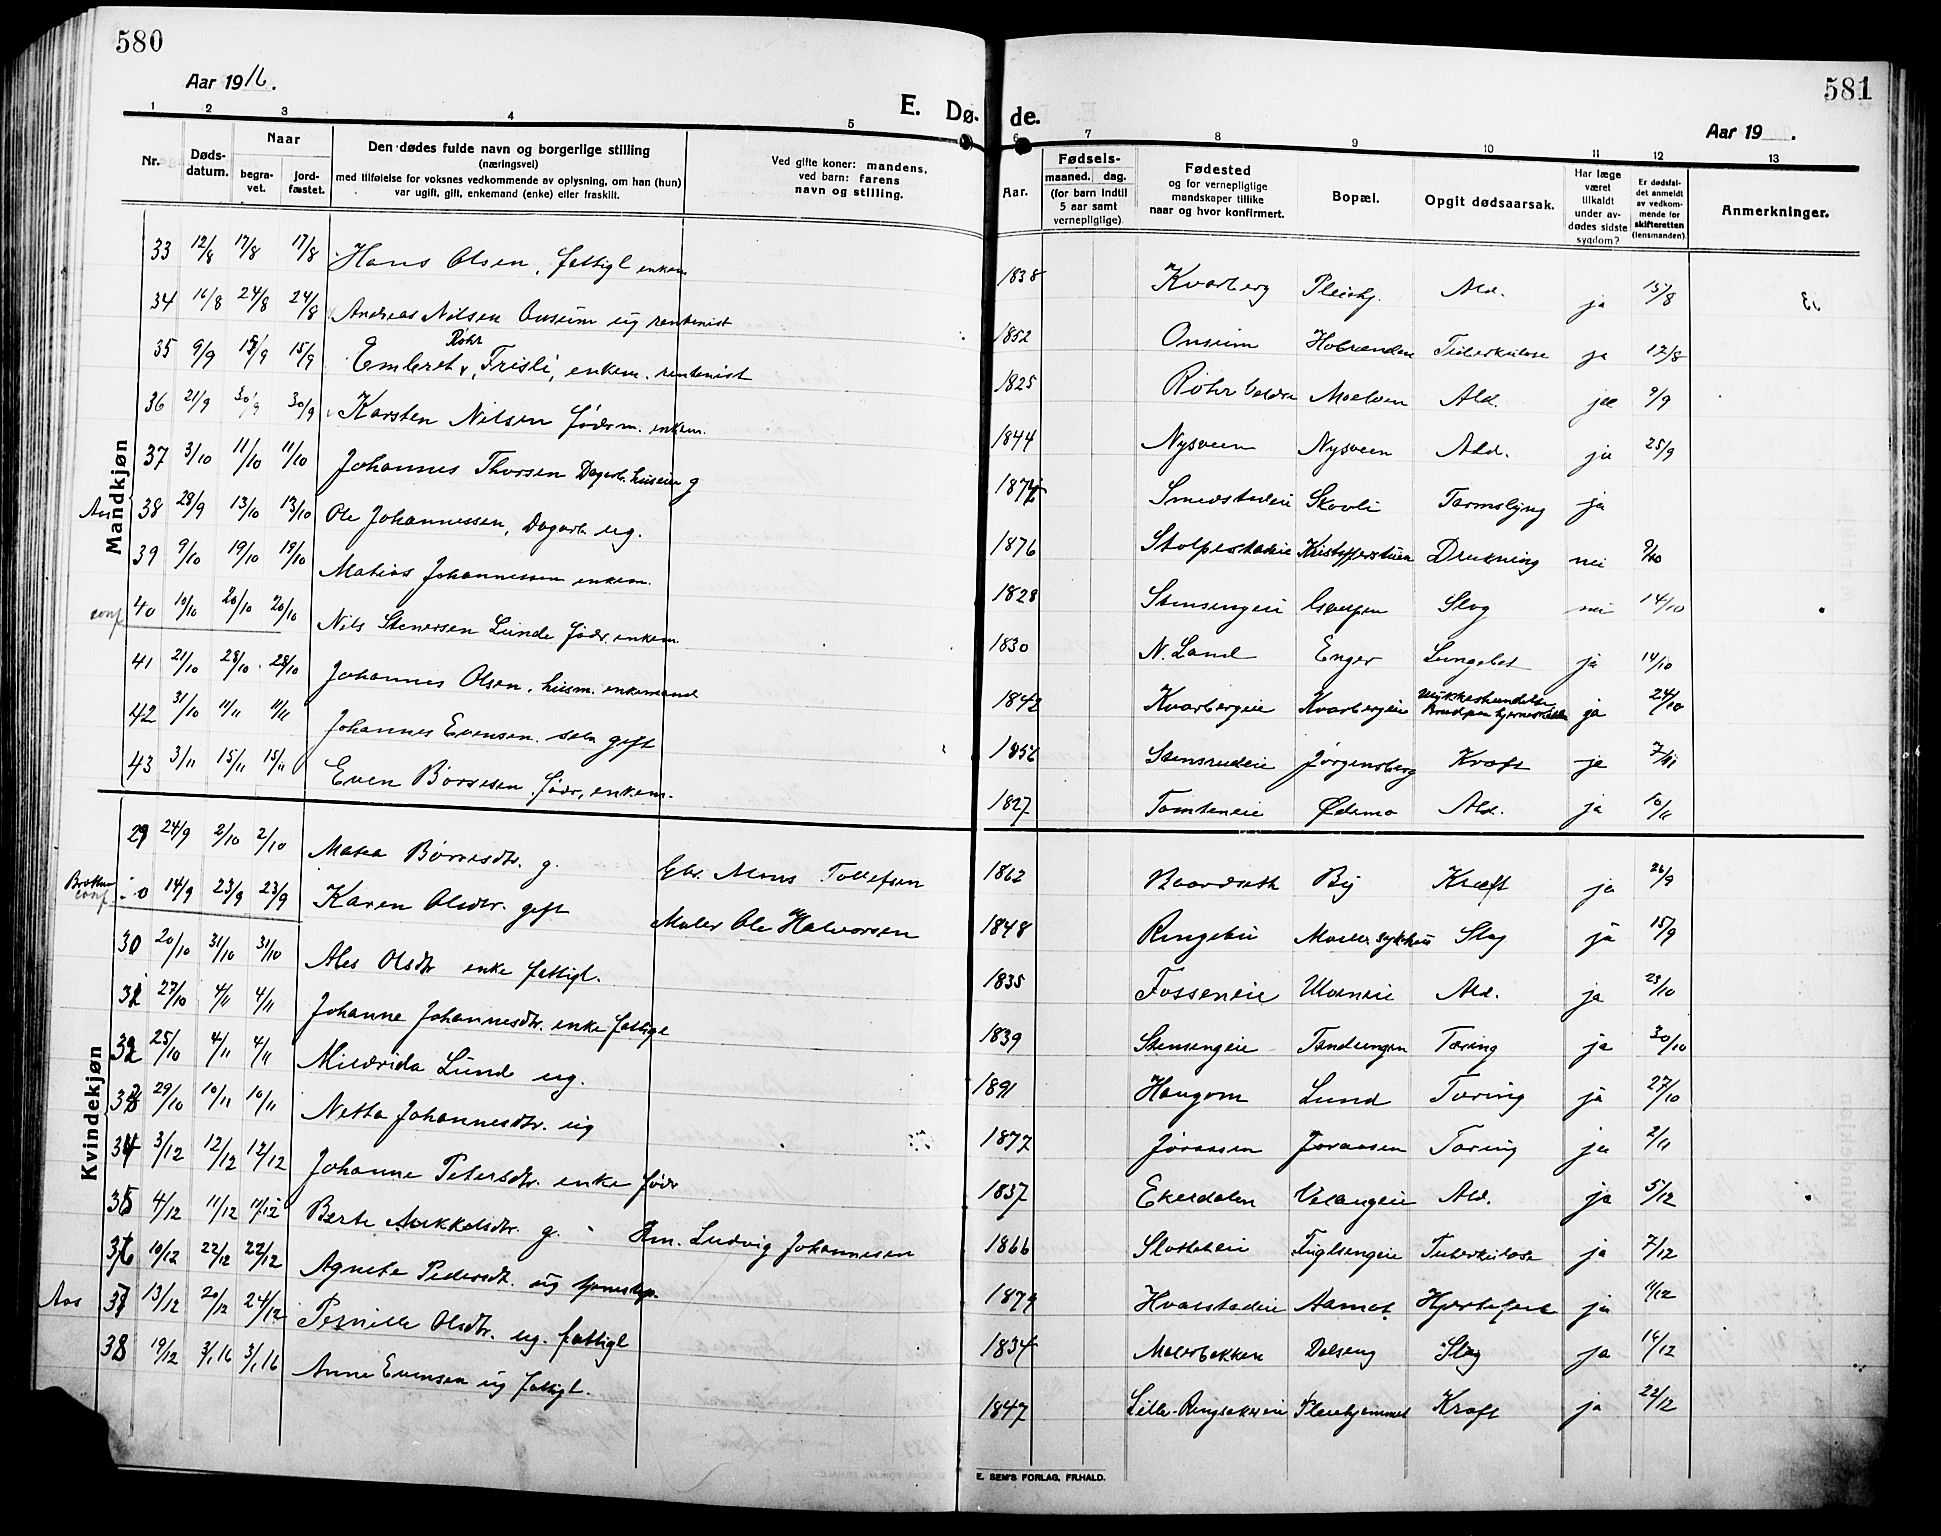 580
Aar 1916.
E. Dø- de.
581
Aar 19 .
1 2 3 4 5 6 7 8 9 10 11 12 13
Nr.
Døds-datum.
Naar
begra-vet.
jord-fæstet.
Den dødes fulde navn og borgerlige stilling
(næringsvei)
med tilføielse for voksnes vedkommende av oplysning, om han (hun)
var ugift, gift, enkemand (enke) eller fraskilt.
Ved gifte koner: mandens,
ved barn: farens
navn og stilling.
Aar.
Fødsels-
maaned. dag.
(for barn indtil
5 aar samt
vernepligtige)
Fødested
og for vernepligtige
mandskaper tillike
naar og hvor konfirmert.
Bopæl.
Opgit dødsaarsak.
Har læge
været
tilkaldt
under av-
dødes sidste
sygdom?
Er dødsfal-
det anmeldt
av vedkom-
mende for
skifteretten
(lensmanden).
Anmerkninger.
Mandkjøn
33 12/8 17/8 17/8 Hans Olsen, fattigl enkem 1838 Kvarberg Pleiehj. Ald. ja 15/8
34 16/8 24/8 24/8 Andreas Nilsen Onsum ug rentenist 1852 Onsum Tuberkulose ja 17/8
35 9/9 15/9 15/9 Embret Røhr Frisli, enkem. rentenist 1825 Røhr Moelven Ald. ja 9/9
36 21/9 30/9 30/9 Karsten Nilsen føder. enkem. 1844 Nysveen Nysveen Ald. ja 25/9
37 3/10 11/10 11/10 Johannes Thorsen Dagarb. huseier g 1874 Smedstadeie Skovli Tarmslyng ja
Aas 38 28/9 13/10 13/10 Ole Johannessen, Dagarb. ug. 1876 Stolpestadeie Kristofferstuen Drukning nei 9/10
39 9/10 19/10 19/10 Matias Johannessen enkem. 1828 Stensengeie Slag nei 14/10
conf 40 10/10 20/10 20/10 Nils Stenersen Lunde føder. enkem 1830 N. Land Enger Lungebet ja 14/10
41 21/10 28/10 28/10 Johannes Olsen, husm. enkemand 1842 Kvarbergeie Kvarbergeie Ulykkeshændelse ja 24/10
42 31/10 11/11 11/11 Johannes Evensen gift 1856 Stensrudeie Jørgensberg Kræft ja 7/11
43 3/11 15/11 15/11 Even Børsesen. føder, enkem. 1827 Tomteneie Ødemo Ald. ja 10/11
Kvindekjøn
29 24/9 2/10 2/10 Matea Børresdtr. g. Gbr. Mons Tollefsen 1862 Baardseth By Kræft ja 26/9
conf. 14/9 23/9 23/9 Karen Olsdtr. gift Maler Ole Halvorsen 1848 Ringebu Moelv. sykehus Slag ja 15/9
30 20/10 31/10 31/10 Ales Olsdtr enke fattigl. 1835 Fosseneie Ulveneie Ald. ja 23/10
31 27/10 4/11 4/11 Johanne Johannesdtr. enke fattigl 1839 Stensengeie Tandsengen Tæring ja 30/10
32 25/10 4/11 4/11 Mildrida Lund ug. 1891 Haugom Lund Tæring ja 27/10
33 29/10 10/11 10/11 Netta Johannesdtr. ug 1877 Joraasen Joraasen Tæring ja 2/11
34 3/12 12/12 12/12 Johanne Petersdtr. enke føder 1837 Ekerdalen Ald. ja 5/12
35 4/12 11/12 11/12 Berte Mikkelsdtr. g. Hm. Ludvig Johannesen 1866 Slotteteie Fuglsengeie Tuberkulose ja 7/12
36 10/12 22/12 22/12 Agnete Pedersdt. ug tjenestep. 1879 Hvalstadeie Aamot Hjertefeil ja 11/12
Aas 37 13/12 20/12 24/12 Pernille Olsdtr. ug. fattigl 1834 Malerbakken Dalseng Slag ja 14/12
38 19/12 3/1 16 3/1 16 Anne Evensen ug fattigl. 1847 Lille-Ringsakereie Pleiehjemmet Kræft ja 22/12
E. SEM'S FORLAG, FR.HALD.